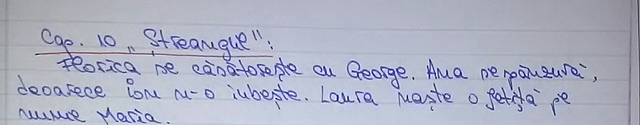 Cap. 10 „Ștreangul":
Florica se căsătorește cu George. Ana se spânzură,
deoarece Ion n-o iubește. Laura naște o fetiță pe
nume Maria.